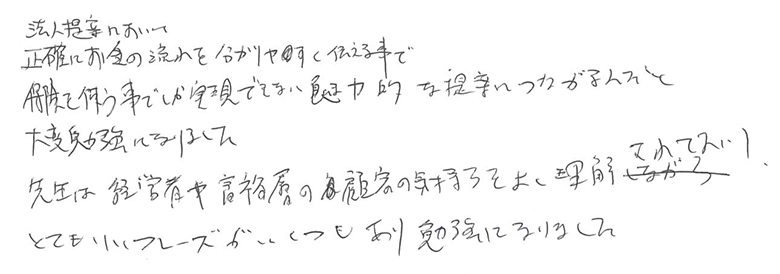 法人提案において
正確にお金の流れを分かりやすく伝える事で
保険を使う事でしか実現できない魅力的な提案につながるんだと
大変勉強になりました
先生は経営者や富裕層の顧客の気持ちをよく理解されており
とてもいいフレーズがいくつもあり勉強になりました